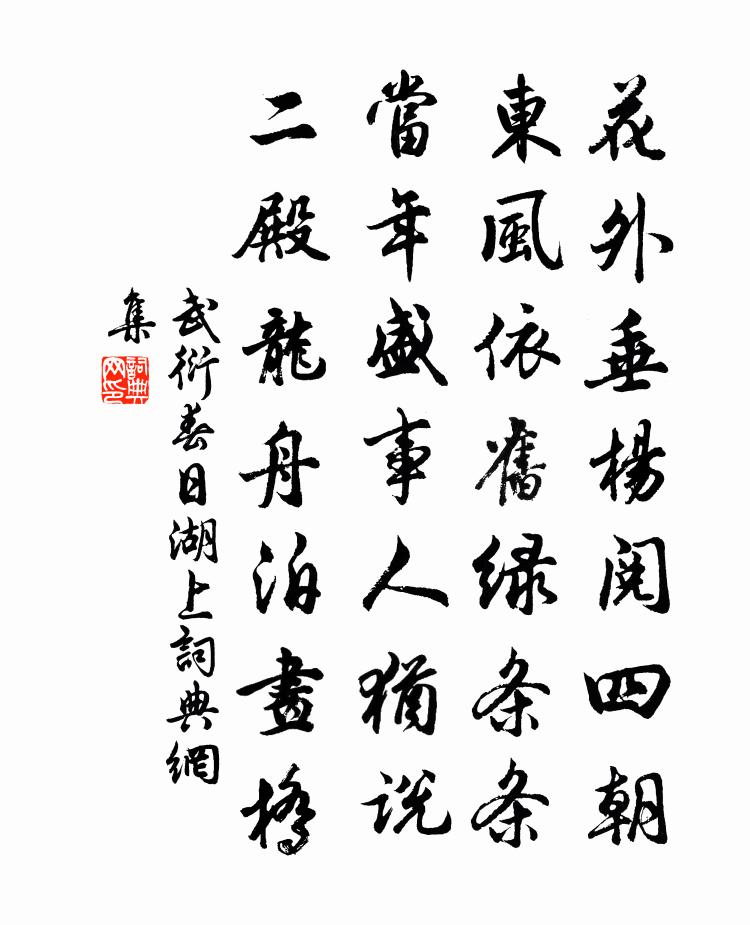 花外垂楊閱四朝
東風依舊緑条条
當年盛事人猶説
二殿龍舟泊畫橋
武衍春日湖上詞典網
集
詞典
网印